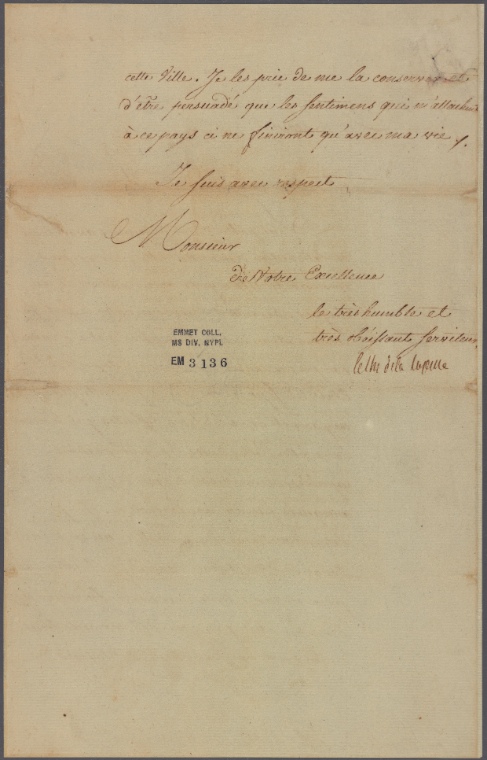 cette Ville. Je les prie de me la conserver et
d'être persuadé que les sentimens qui m'attachent
à ce pays ci ne finiront qu'avec ma vie
Je suis avec respect
Monsieur
De Votre Excellence
le très humble et
très obéissant serviteur
EMMET COLL.
MS DIV. NYPL
EM 3136
le Ch. de la Luzerne